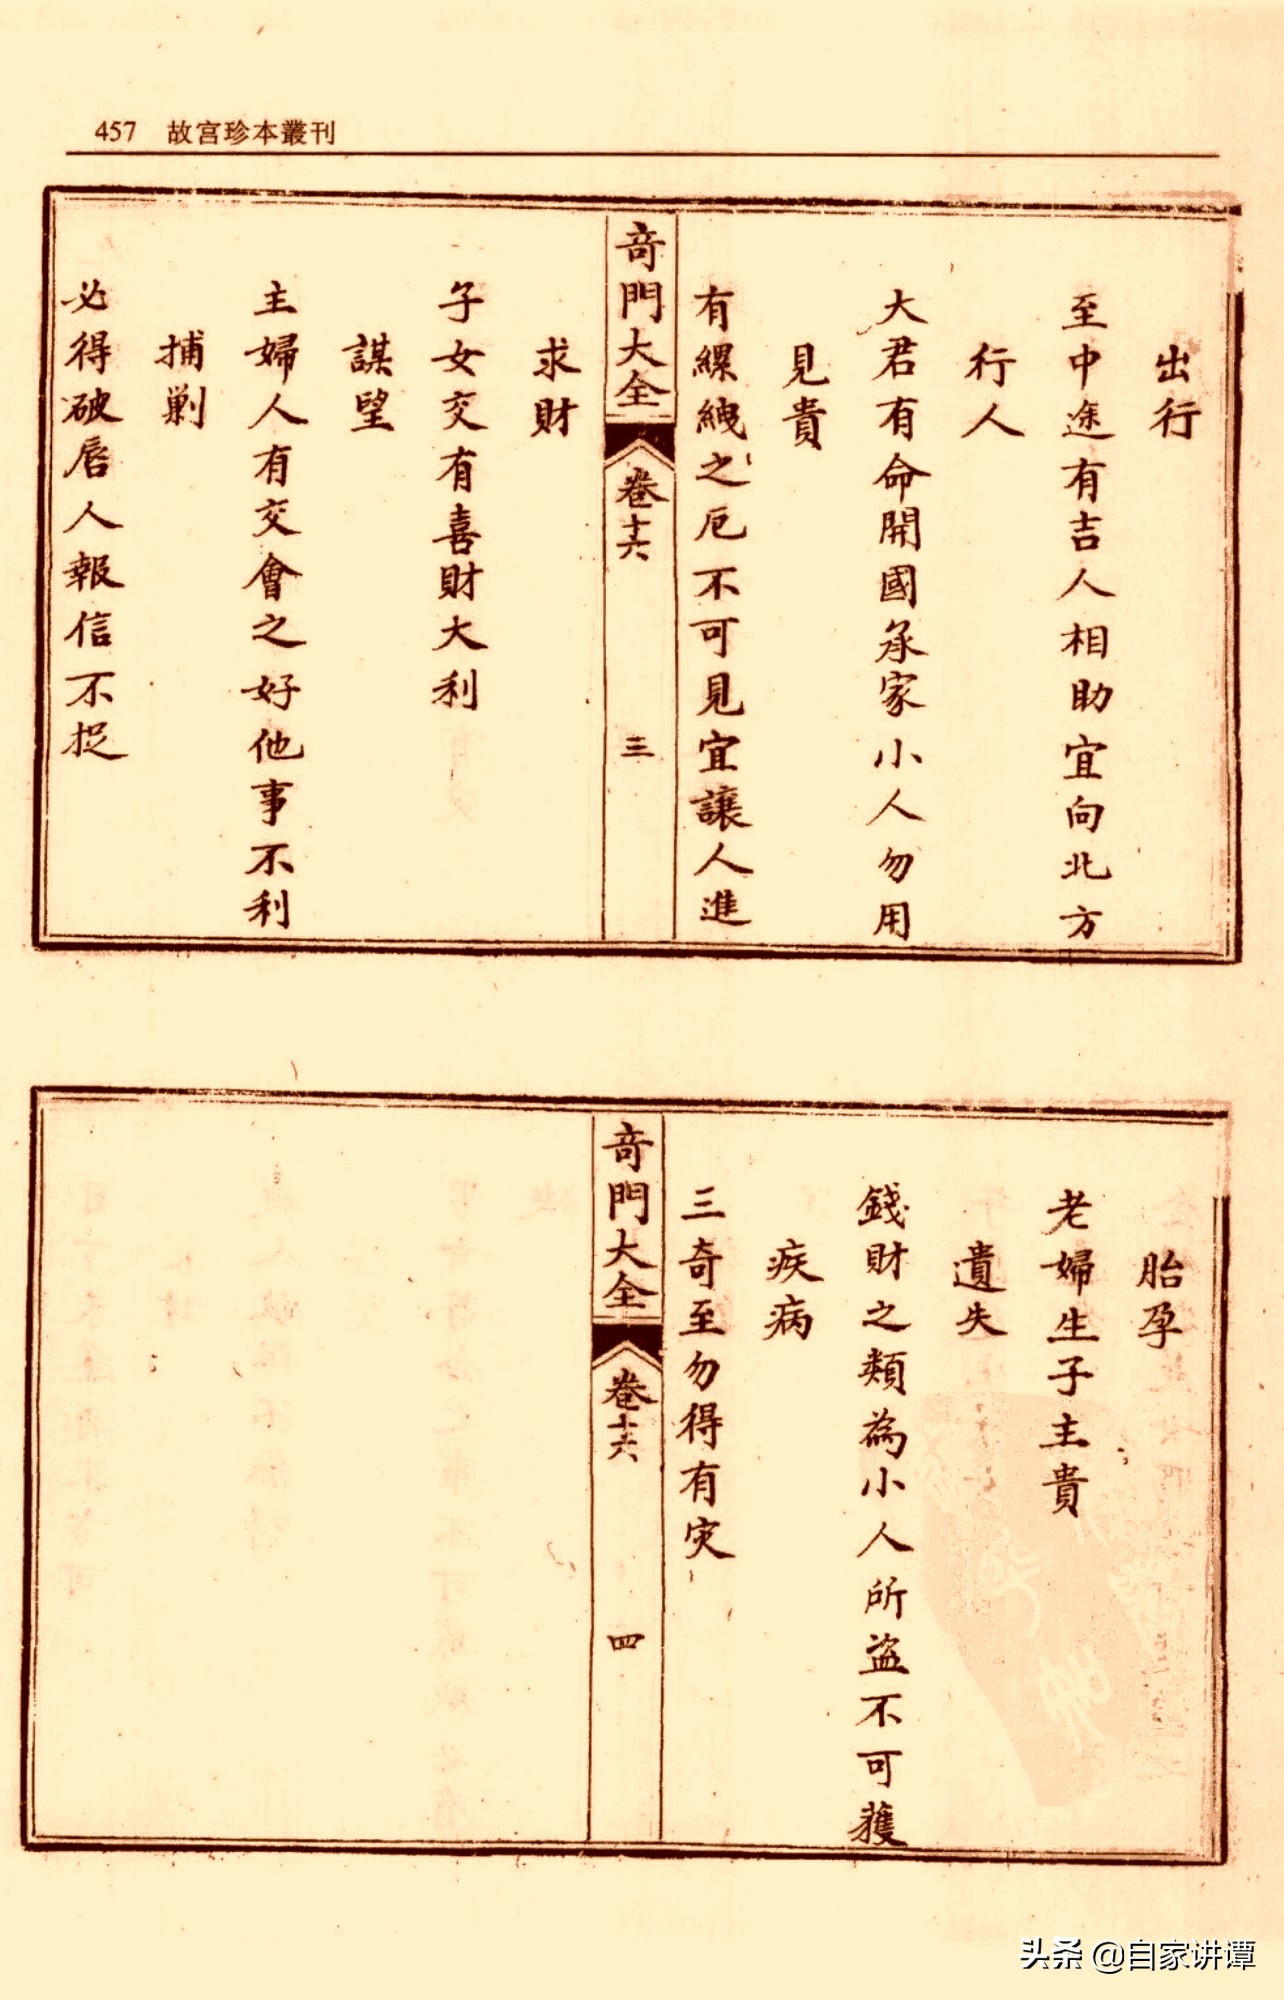 457 故宮珍本叢刊
出行
至中途有吉人相助宜向北方
行人
大君有命開國承家小人勿用
見貴
有縲絏之厄不可見宜讓人進
奇門大全 卷十六 三
求財
子女交有喜財大利
謀望
主婦人有交會之好他事不利
捕剿
必得破唇人報信不捉
胎孕
老婦生子主貴
遺失
錢財之類為小人所盜不可獲
疾病
三奇至勿得有灾
奇門大全 卷十六 四
头条 @自家讲谭